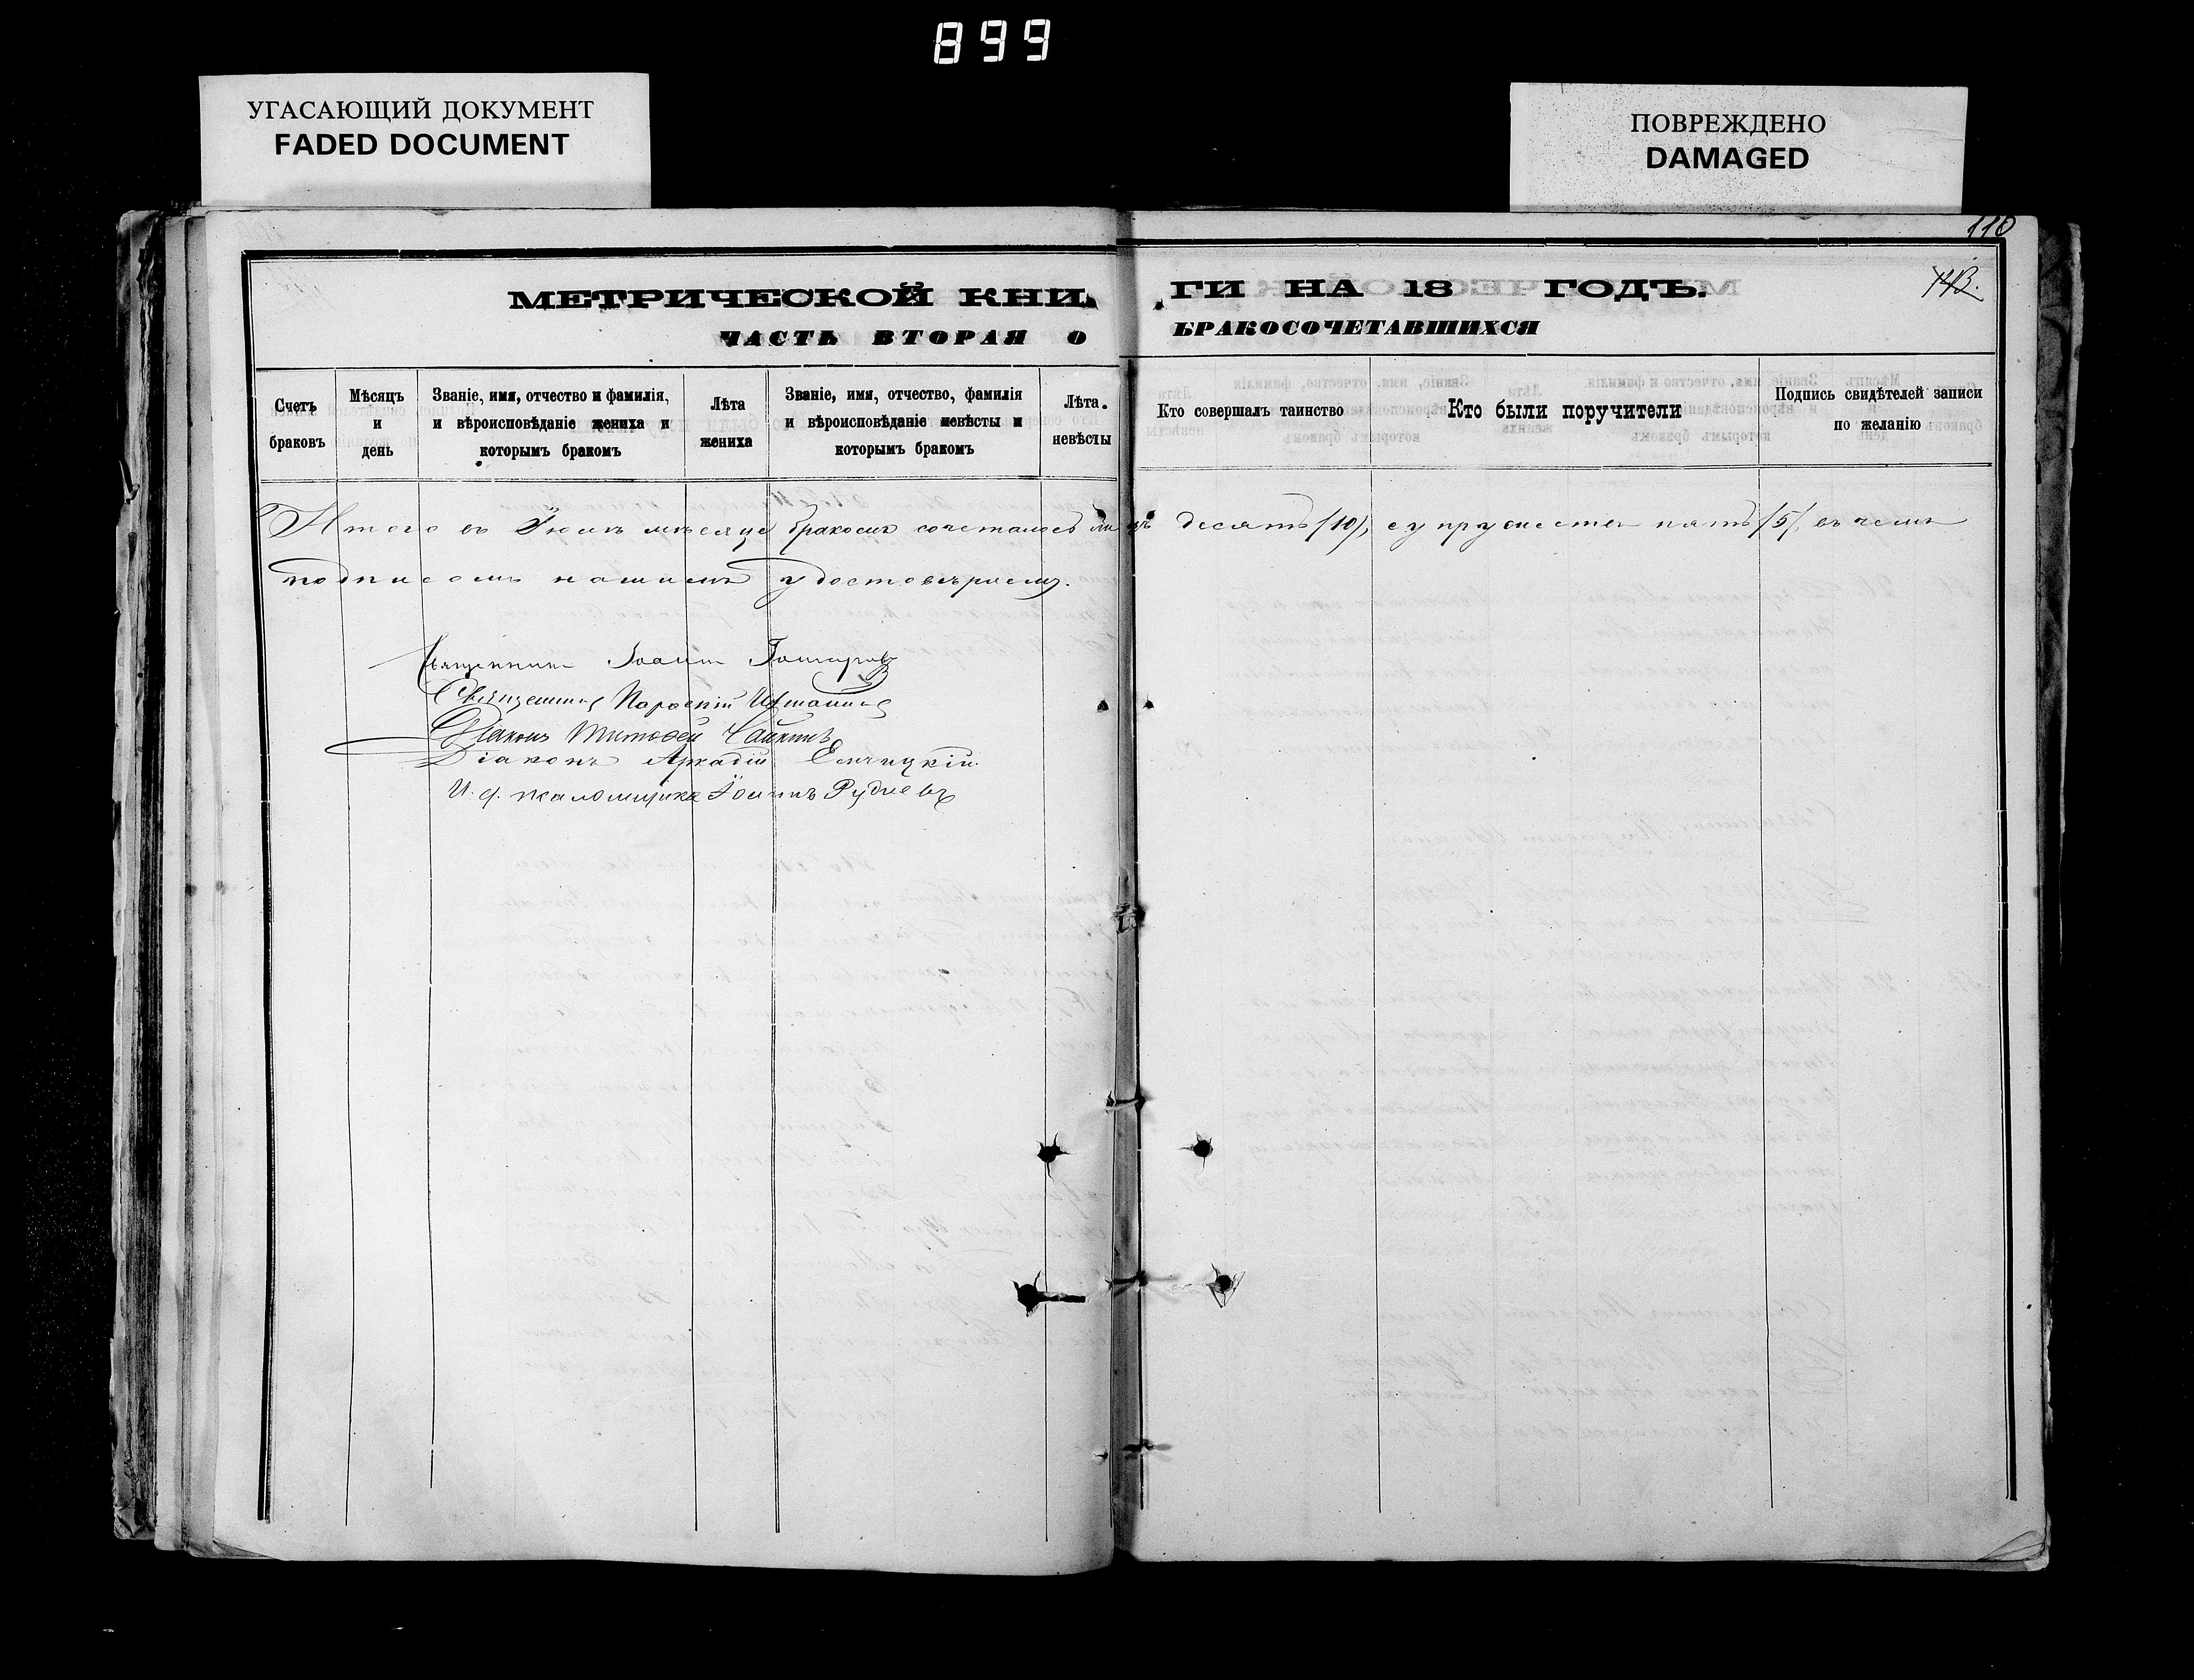 899
УГАСАЮЩИЙ ДОКУМЕНТ
FADED DOCUMENT
ПОВРЕЖДЕНО
DAMAGED
110
113.
МЕТРИЧЕСКОЙ КНИ ГИ НА 18 ГОДЪ.
ЧАСТЬ ВТОРАЯ О БРАКОСОЧЕТАВШИХСЯ
Счетъ браковъ
Мѣсяцъ и день
Званіе, имя, отчество и фамилія, и вѣроисповѣданіе жениха и которымъ бракомъ
Лѣта жениха
Званіе, имя, отчество, фамилія и вѣроисповѣданіе невѣсты и которымъ бракомъ
Лѣта невѣсты
Кто совершалъ таинство
Кто были поручители
Подпись свидѣтелей записи по желанію
Итого въ Іюлѣ мѣсяцѣ бракомъ сочеталось лицъ десять /10/, супружествъ пять /5/, въ чемъ
подписомъ нашимъ удостовѣряемъ.
Священникъ Іоаннъ
Священникъ
Діаконъ Тимофей
Діаконъ Аркадій Елчицкій
И. д. псаломщика Іоаннъ Рудневъ